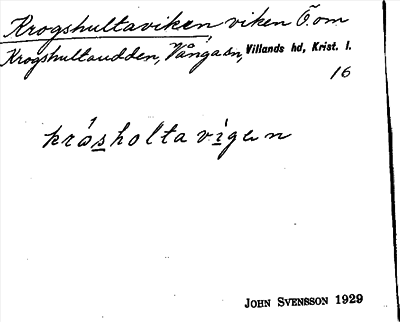 Krogshultaviken, viken Ö om
Krogshultaudden, Vånga sn, Villands hd, Krist. l.
16
kråsholta vigen
JOHN SVENSSON 1929